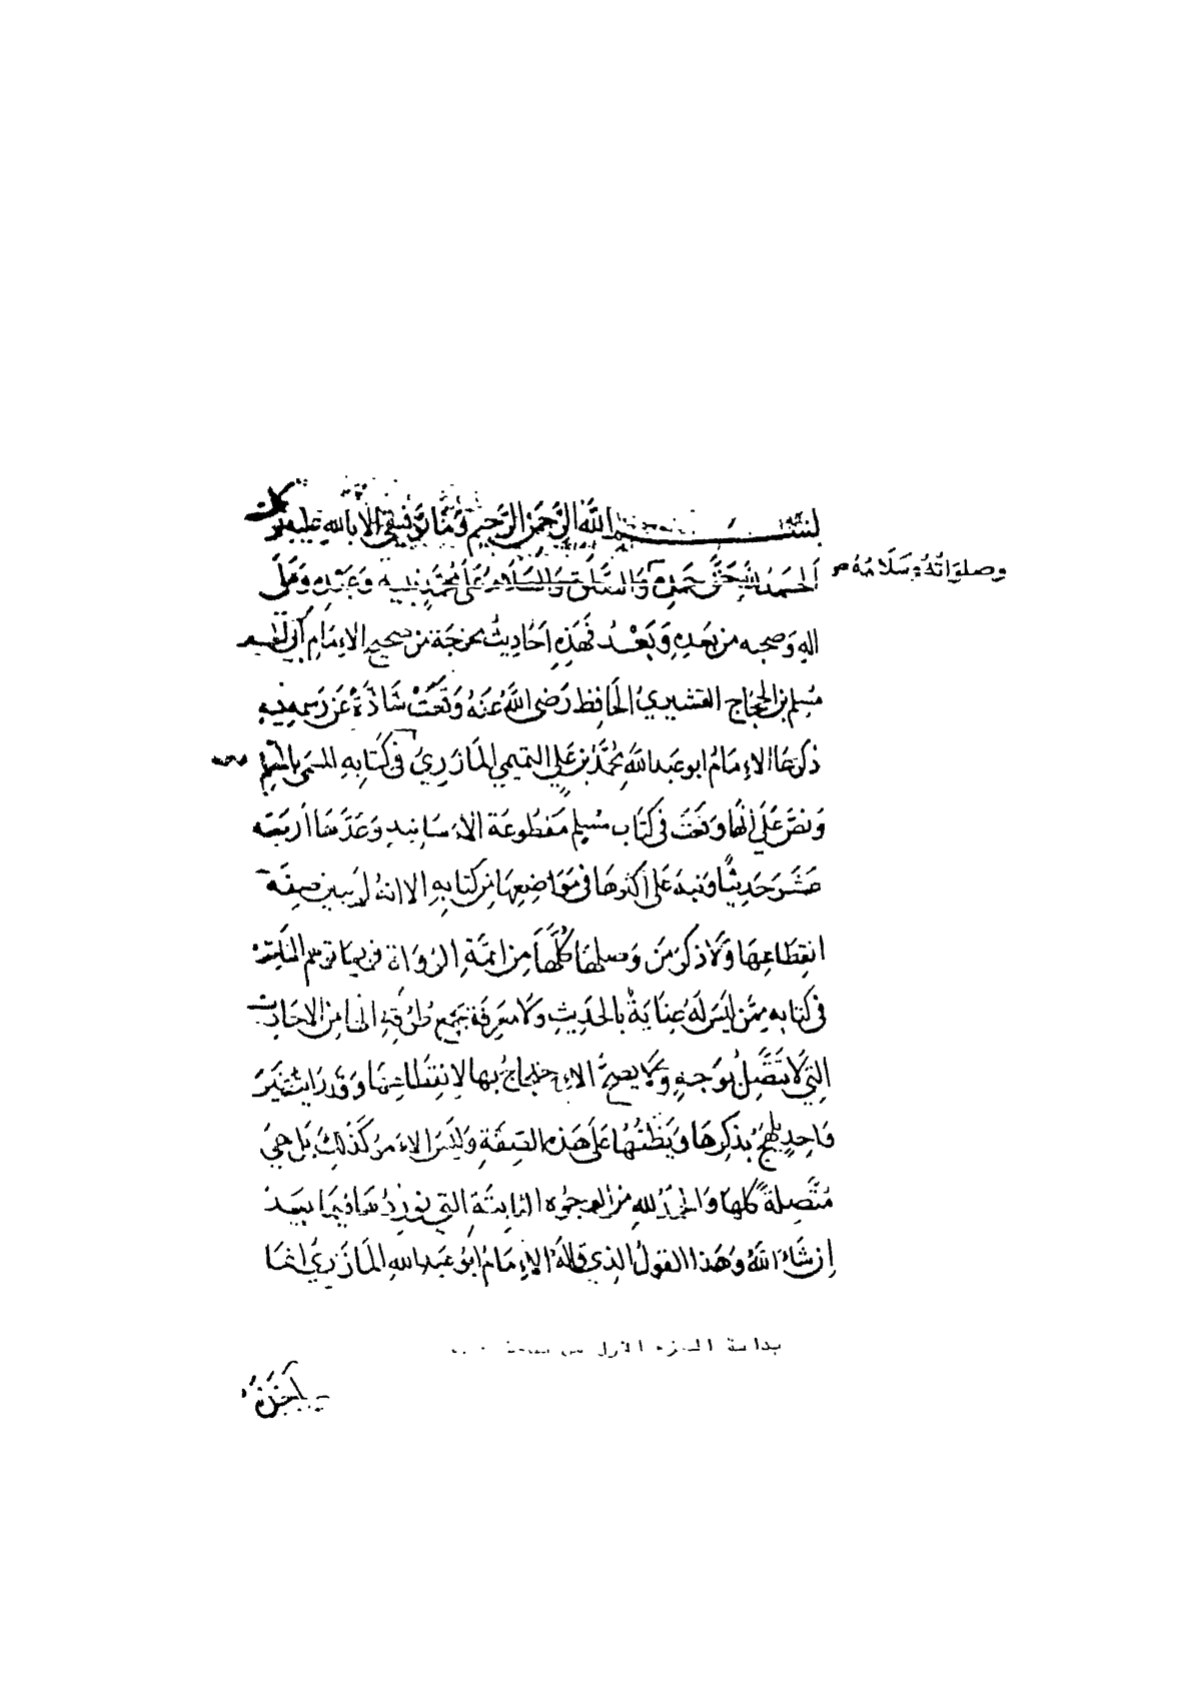 بسم الله الرحمن الرحيم وما توفيقي الا بالله عليه توكلت
الحمد لله حق حمده والصلاة والسلام على محمد نبيه وعبده وعلى
وصلواته وسلامه
اله وصحبه من بعده وبعد فهذه احاديث مخرجة من صحيح الإمام أبي الحسين
مسلم بن الحجاج القشيري الحافظ رضي الله عنه وقعت شاذة عن رسمه فيه
ذكرها الإمام ابو عبد الله محمد بن علي التميمي المازري في كتابه المسمى بالمعلم
ونص على أنها وقعت في كتاب مسلم مقطوعة الأسانيد وعدها أربعة
عشر حديثا ونبه على أكثرها في مواضعها من كتابه الا انه لم يبين صفة
انقطاعها ولا ذكر من وصلها كلها من ائمة الرواة فربما توهم الناظر
في كتابه ممن ليس له عناية بالحديث ولا معرفة بجمع طرقه انها من الاحاديث
التي لا تتصل بوجه ولا يصح الاحتجاج بها لانقطاعها وقد رايت غير
واحد يلهج بذكرها ويظنها على هذه الصفة وليس الأمر كذلك بل هي
متصلة كلها والحمد لله من الوجوه الثابتة التي نوردها فيما بعد
إن شاء الله وهذا القول الذي قاله الإمام ابو عبد الله المازري انما
بداية الجزء الأول من
أخذه